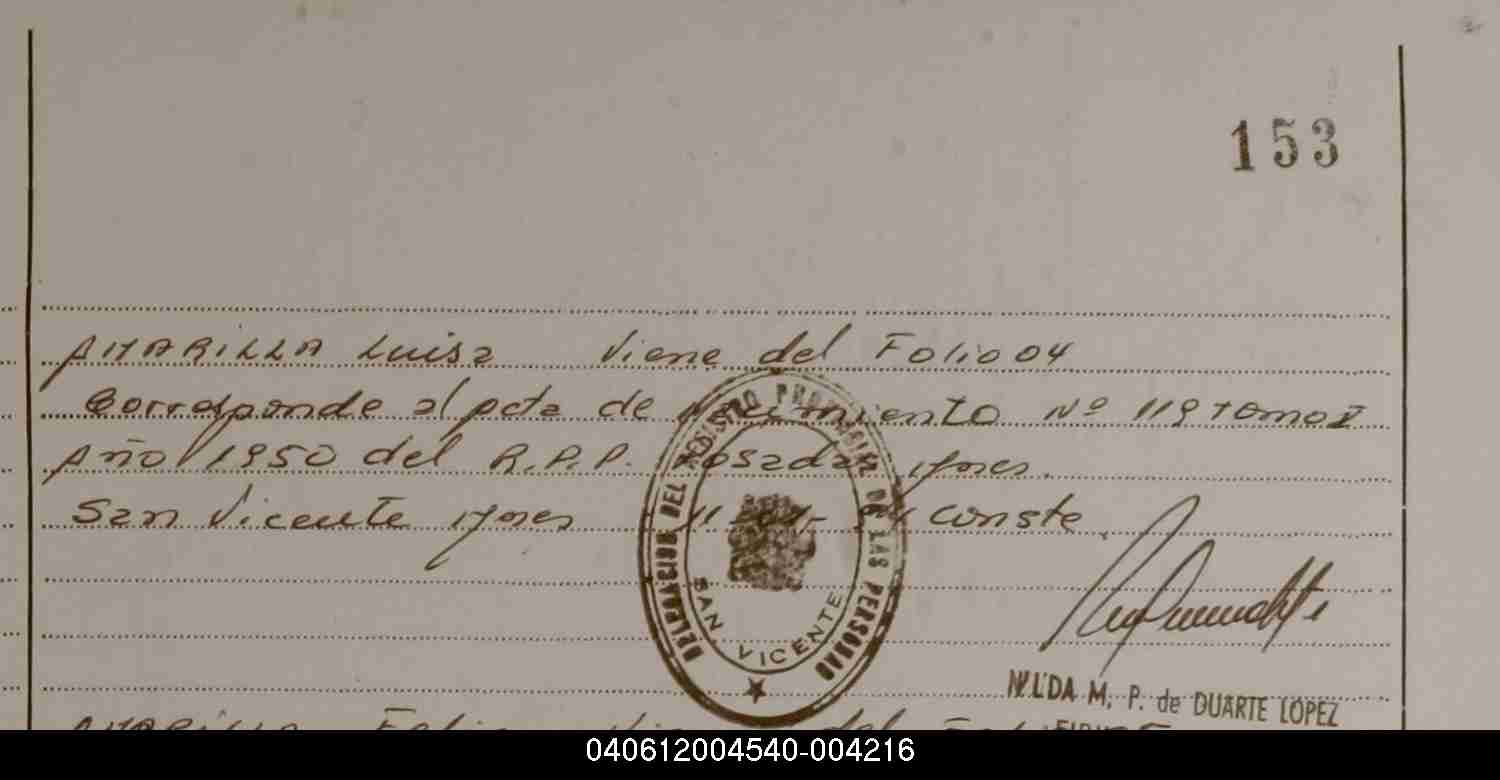 153
AMARILLA Luisa Viene del Folio 04
Corresponde al acta de nacimiento Nº 119 tomo I
Año 1950 del R.P.P. Posadas Mnes.
San Vicente Mnes conste
DELEGACION DEL REGISTRO PROVINCIAL DE LAS PERSONAS
SAN VICENTE
NILDA M. P. de DUARTE LOPEZ
AMARILLA
040612004540-004216